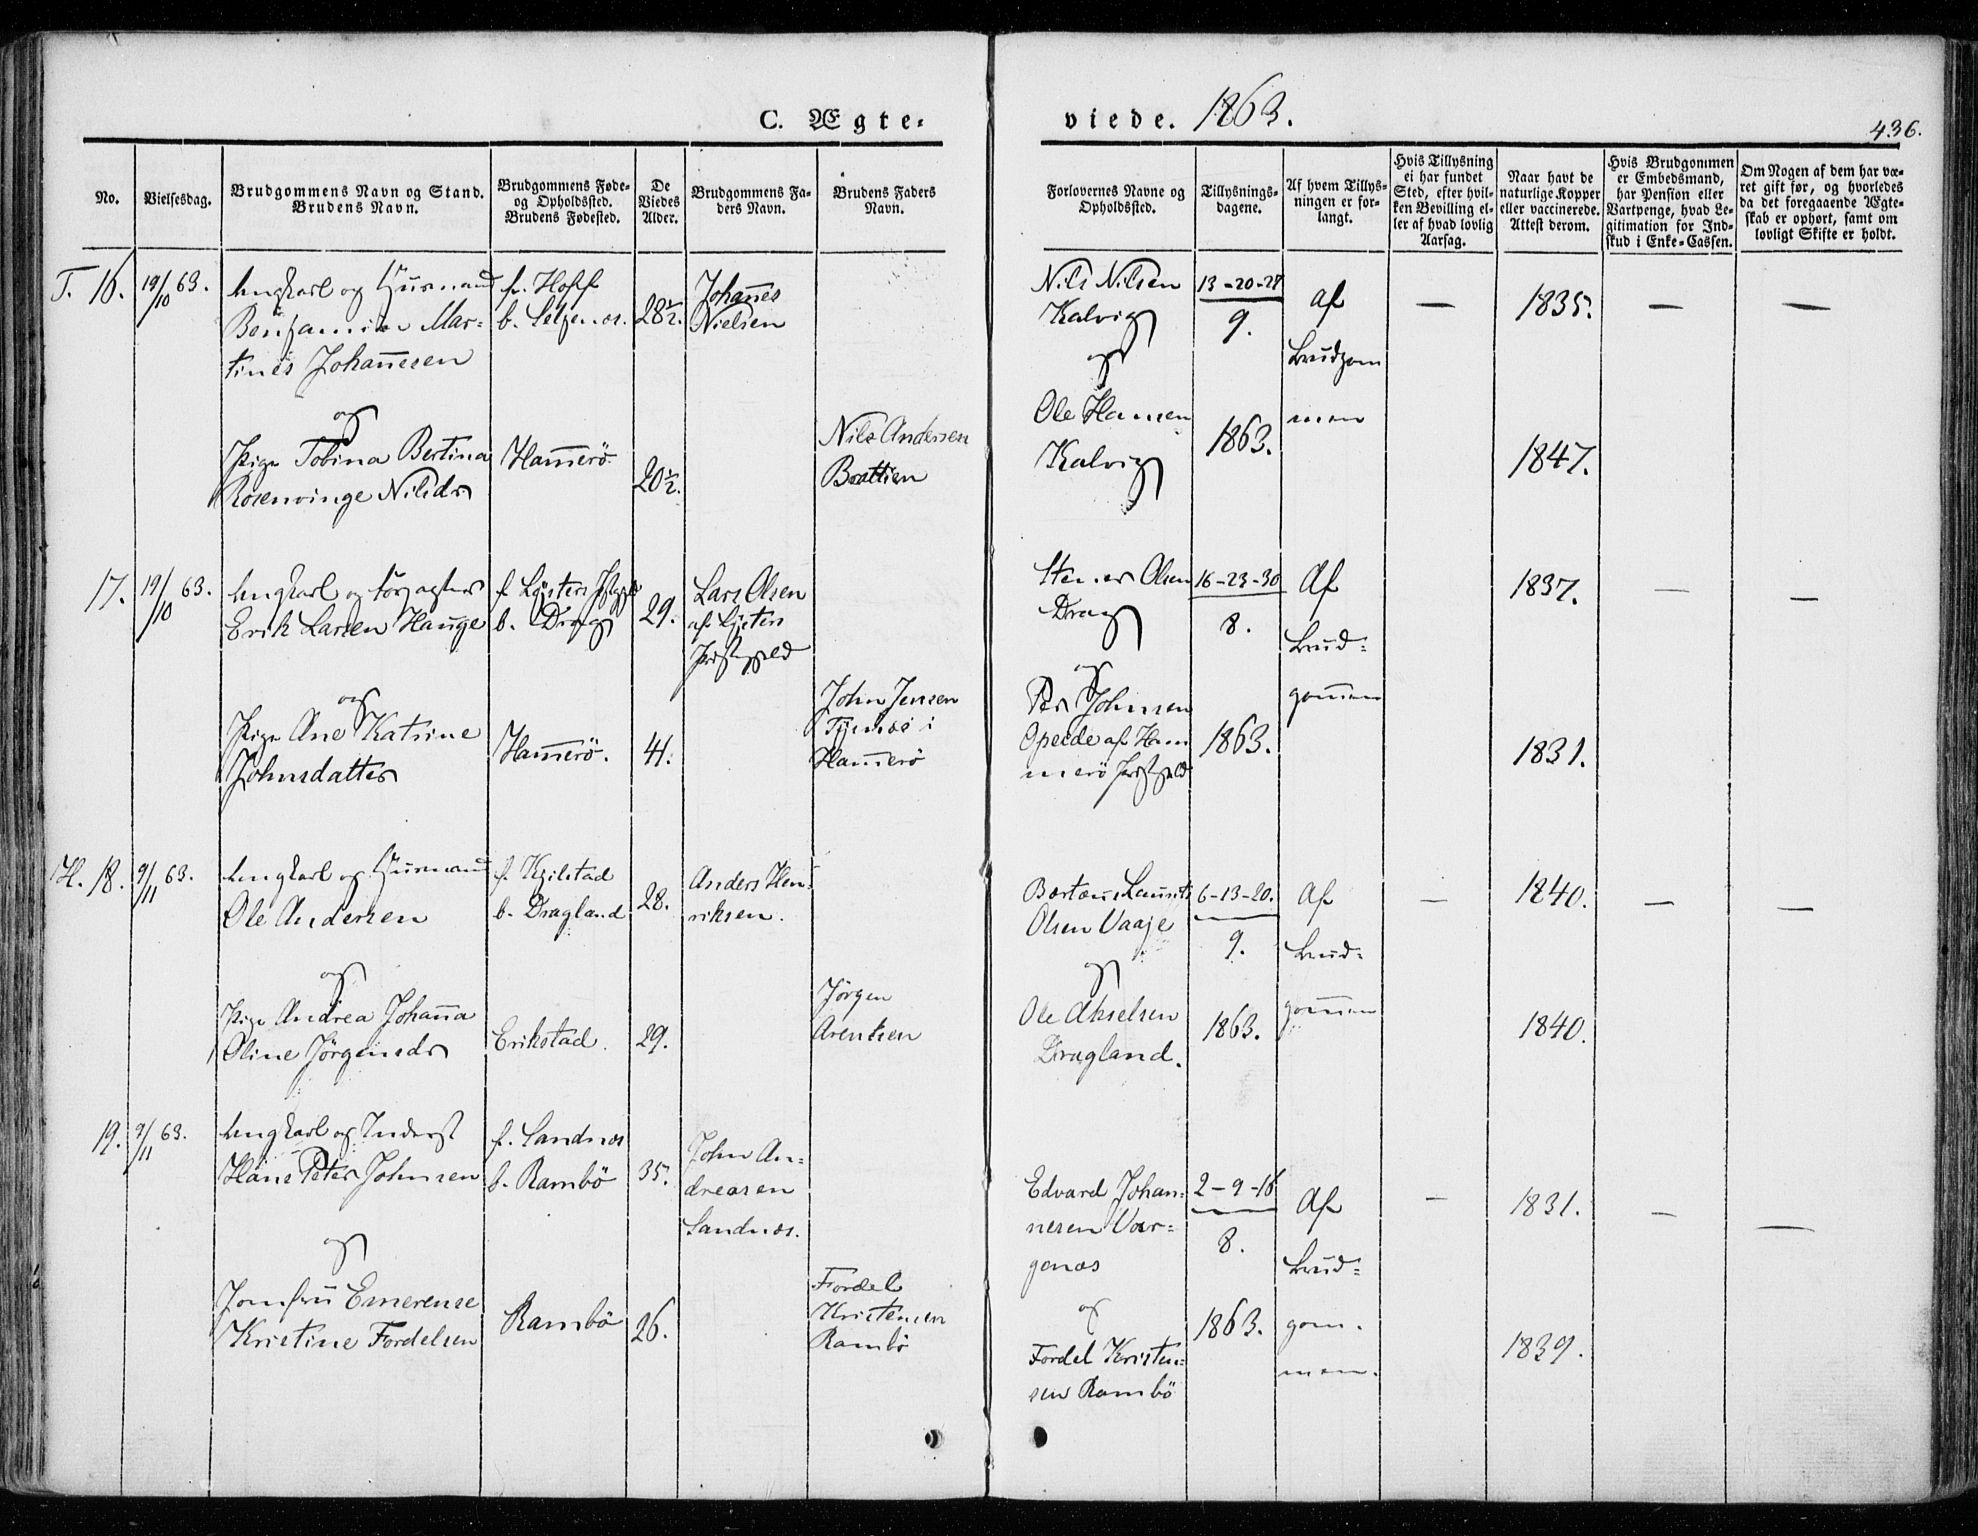 C. Ægte-
viede. 1863.
436.
No.
Vielsesdag.
Brudgommens Navn og Stand.
Brudens Navn.
Brudgommens Føde-
og Opholdssted.
Brudens Fødested.
De
Viedes
Alder.
Brudgommens Fa-
ders Navn.
Brudens Faders
Navn.
Forlovernes Navne og
Opholdssted.
Tillysnings-
dagene.
Af hvem Tillys-
ningen er for-
langt.
Hvis Tillysning
ei har fundet
Sted, efter hvil-
ken Bevilling el-
ler af hvad lovlig
Aarsag.
Naar havt de
naturlige Kopper
eller vaccinerede.
Attest derom.
Hvis Brudgommen
er Embedsmand,
har Pension eller
Vartpenge, hvad Le-
gitimation for Ind-
skud i Enke-Cassen.
Om Nogen af dem har væ-
ret gift før, og hvorledes
da det foregaaende Ægte-
skab er ophørt, samt om
lovligt Skifte er holdt.
T. 16.
19/10 63.
Ungkarl og Huusmand
Benjamin Mar-
tines Johannesen
og
Pige Tobina Bertina
Rosenvinge Nilsdr
f. Hoff
b.
Hammerö
28½.
20½.
Johannes
Nielsen
Nils Andersen
Brattien
Nils Nilsen
Kalvig
og
Ole Hansen
Kalvig
13-20-27
9.
1863.
af
brudgom
men
—
1835.
1847.
—
—
17.
19/10 63.
Ungkarl og
Erik Larsen Hauge
og
Pige Ane Katrine
Johnsdatter
f. Lysters
b. Drag
Hammerö.
29.
41.
Lars Olsen
af Lysters
Præstegjeld
John Jensen
i
Hammerö
Olsen
Drag
og
Per Johnsen
Opeide af Ham
merö Præstegjeld
16-23-30
8.
1863.
Af
brud-
gommen
1837.
1831.
—
—
H. 18.
9/11 63.
Ungkarl og Huusmand
Ole Andersen
og
Pige Andrea Johanna
Oline Jörgensdr
f.
b. Dragland
Erikstad.
28.
29.
Anders Hen-
riksen.
Jörgen
Arentsen
Laurits
Olsen Vaaje
og
Ole Akselsen
Dragland.
6-13-20.
9.
1863.
Af
brud-
gommen
—
1840.
1840.
—
—
19.
9/11 63.
Ungkarl og Inderst
Hans Peter Johnsen
og
Jomfru Emerense
Kristine Fordelsen
f. Sandnæs
b. Rambö
Rambö
35.
26.
John An-
dreasen
Sandnæs.
Fordel
Kristensen
Rambö
Edvard Johan-
nesen Vær-
genæs
og
Fordel Kristen-
sen Rambö
2-9-16
8.
1863.
Af
brud-
gom-
men.
—
1831.
1839.
—
—